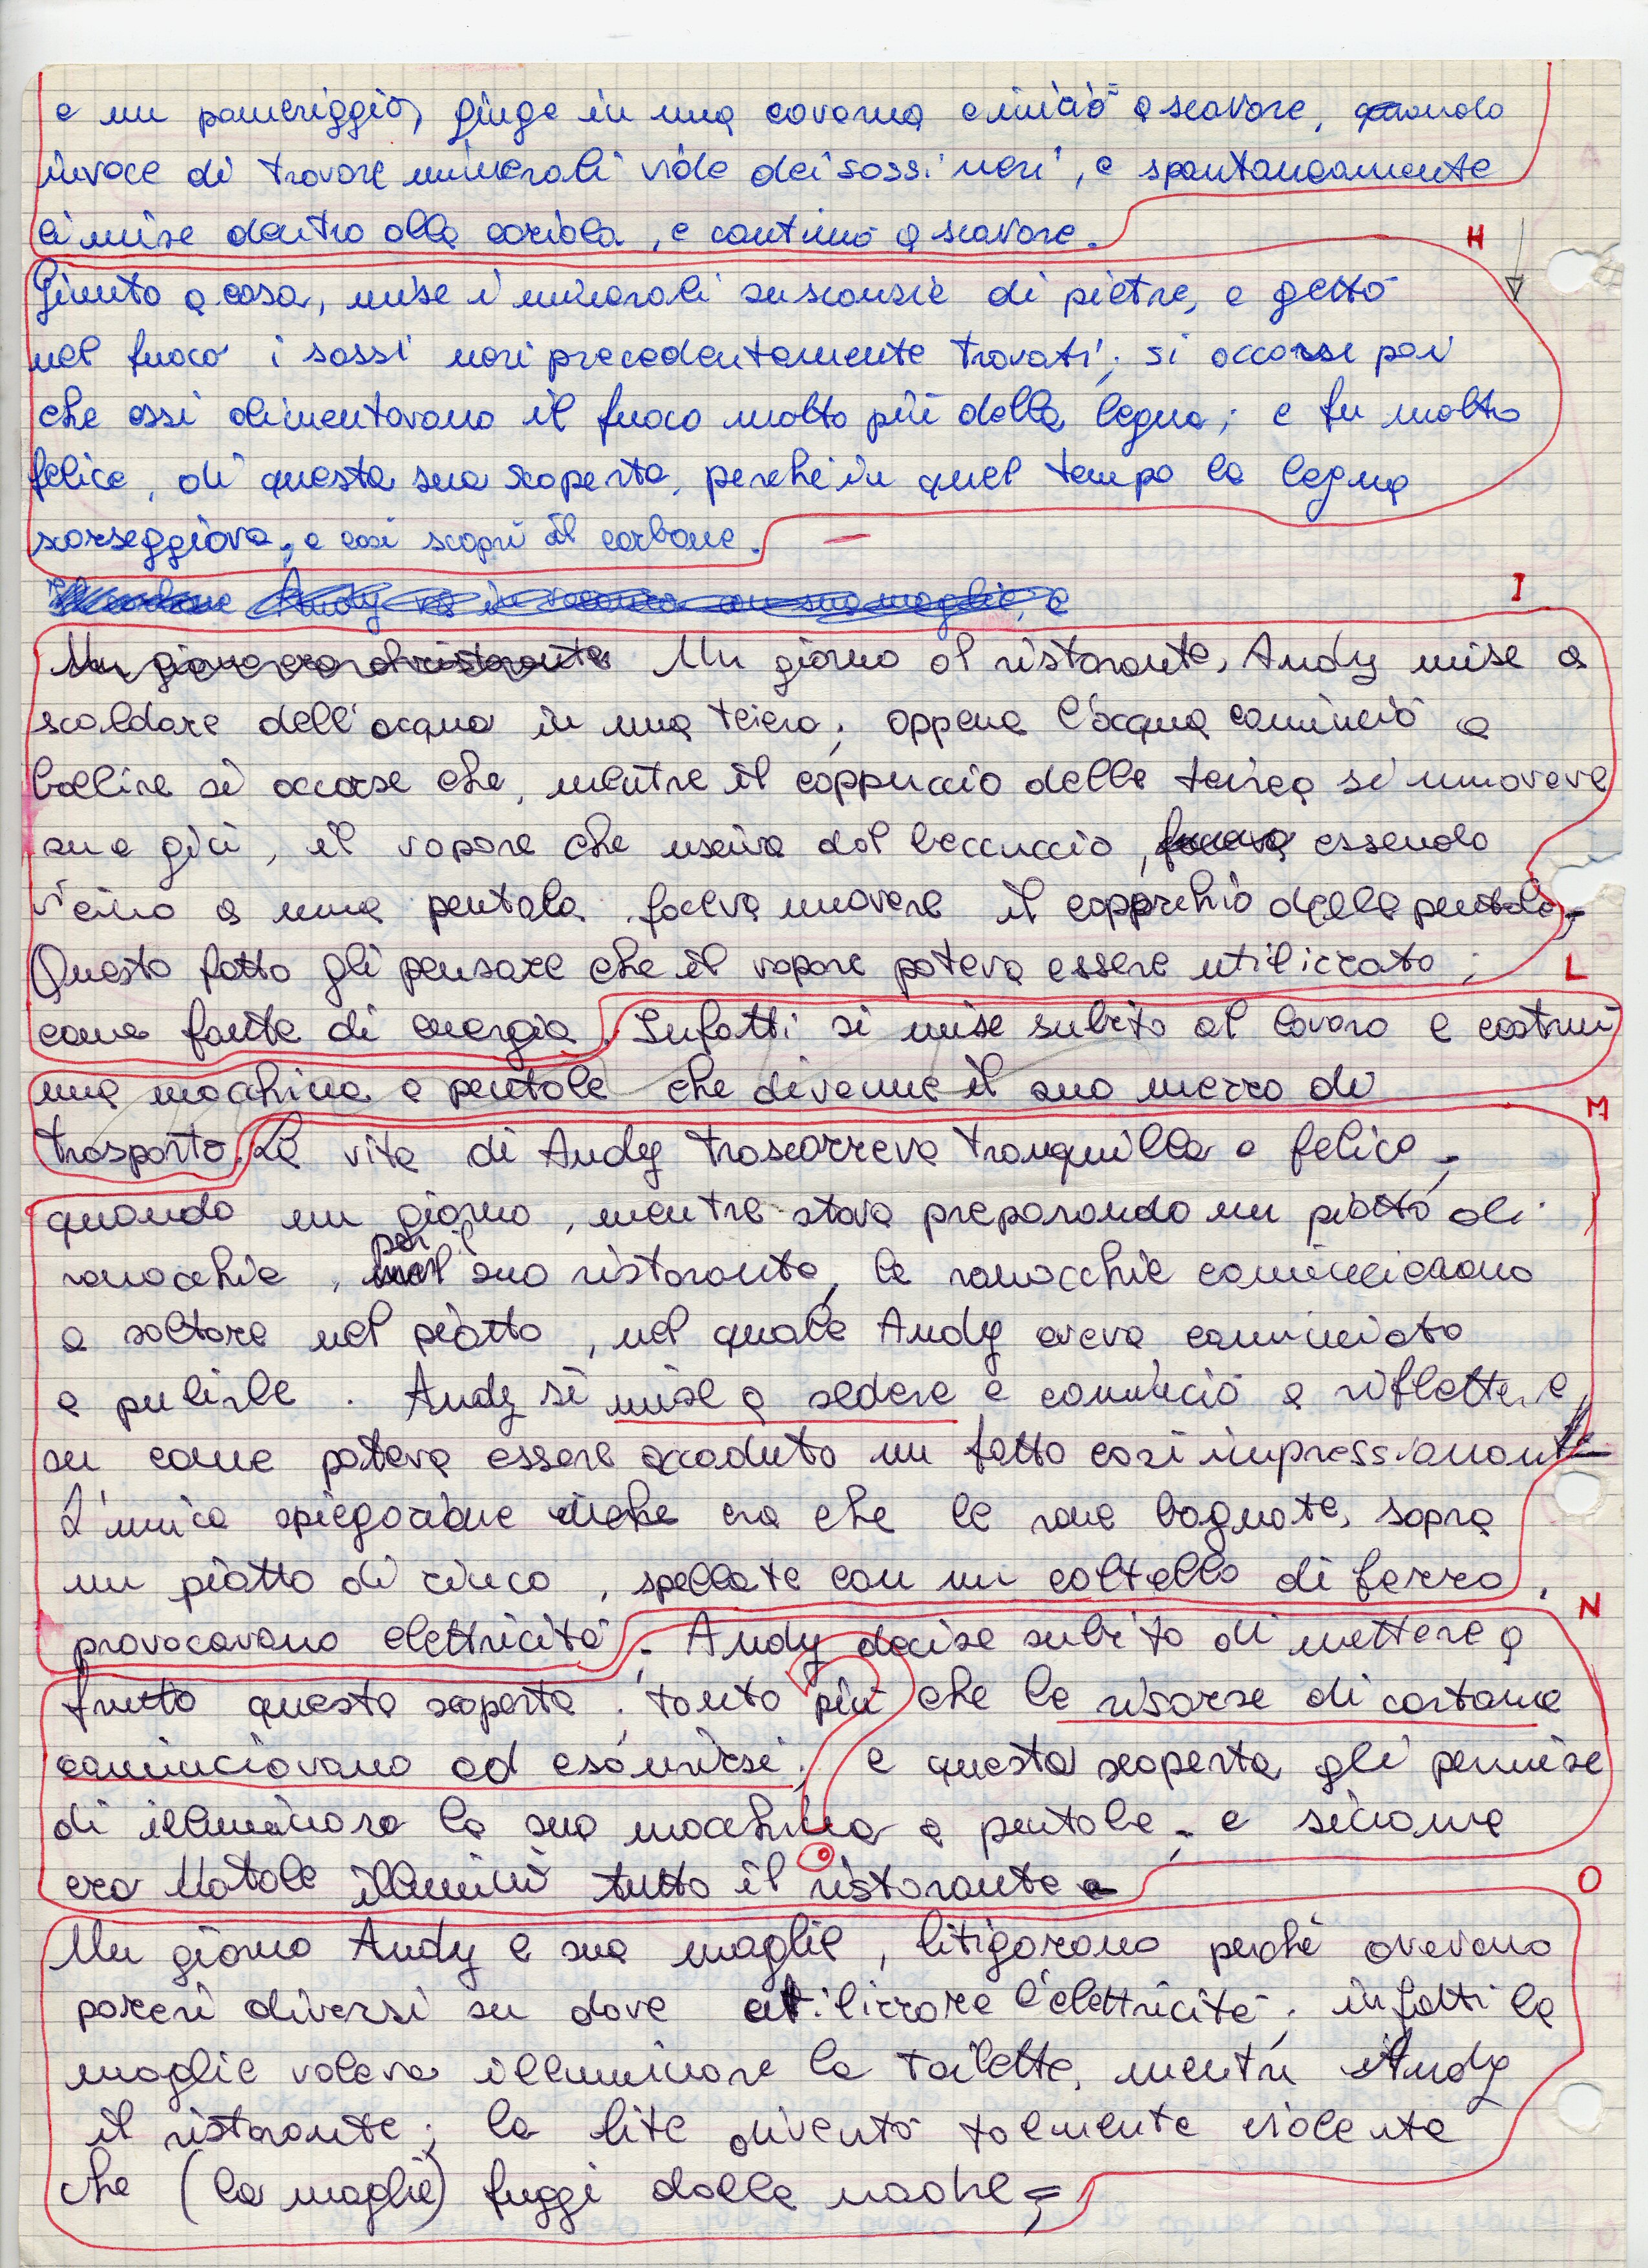 e un pomeriggio, giunge in una caverna e iniziò a scavare, quando
invece di trovare minerali vide dei sassi neri, e spontaneamente
li mise dentro alla cariola, e continuò a scavare.
H
Giunto a casa, mise i minerali su scansie di pietre, e gettò
nel fuoco i sassi neri precedentemente trovati; si accorse poi
che essi alimentavano il fuoco molto più della legna; e fu molto
felice, di questa sua scoperta, perché in quel tempo la legna
scarseggiava, e così scoprì il carbone.
Andy va in vacanza con sua moglie, e
I
Un giorno era al ristorante Un giorno al ristorante, Andy mise a
scaldare dell'acqua in una teiera; appena l'acqua cominciò a
bollire si accorse che, mentre il cappuccio della teiera si muoveva
su e giù, il vapore che usciva dal beccuccio, faceva essendo
vicino a una pentola faceva muovere il copperchio della pentola.
Questo fatto gli pensare che il vapore poteva essere utilizzato;
L
come fonte di energia. Infatti si mise subito al lavoro e costruì
una macchina a pentole che divenne il suo mezzo di
M
trasporto. La vita di Andy trascorreva tranquilla e felice,
quando un giorno, mentre stava preparando un piatto di
per il
ranocchie, nel suo ristorante, le ranocchie cominciarono
a saltare nel piatto, nel quale Andy aveva cominciato
a pulirle. Andy si mise a sedere e cominciò a riflettere
su come poteva essere accaduto un fatto così impressionante
L'unica spiegazione era che le rane bagnate, sopra
un piatto di zinco, spellate con un coltello di ferro,
N
provocavano elettricità. Andy decise subito di mettere a
frutto questa scoperta; tanto più che le risorse di carbone
cominciavano ad esaurirsi; e questa scoperta gli permise
di illuminare la sua macchina a pentole; e siccome
era Natale illuminò tutto il ristorante
O
Un giorno Andy e sua moglie, litigarono perché avevano
pareri diversi su dove utilizzare l'elettricità; infatti la
moglie voleva illuminare la toilette, mentre Andy
il ristorante; la lite diventò talmente violenta
che (la moglie) fuggì dalla